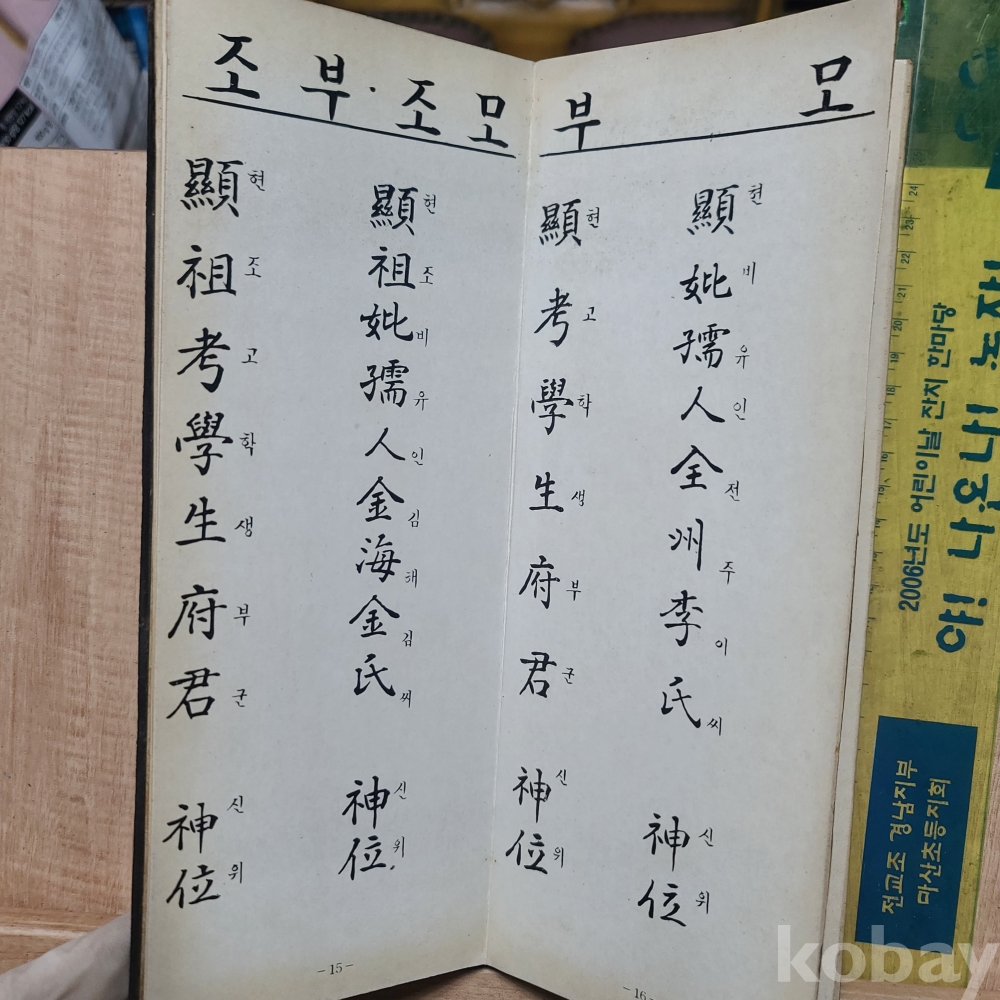 조부·조모
顯현祖조考고學학生생府부君군 神신位위
顯현祖조妣비孺유人인金김海해金김氏씨 神신位위
-15-
부 모
顯현考고學학生생府부君군 神신位위
顯현妣비孺유人인全전州주李이氏씨 神신位위
-16-
2006년도 어린이날 잔치 한마당
야! 나오너! 놀자!
전교조 경남지부
마산초등지회
kobay